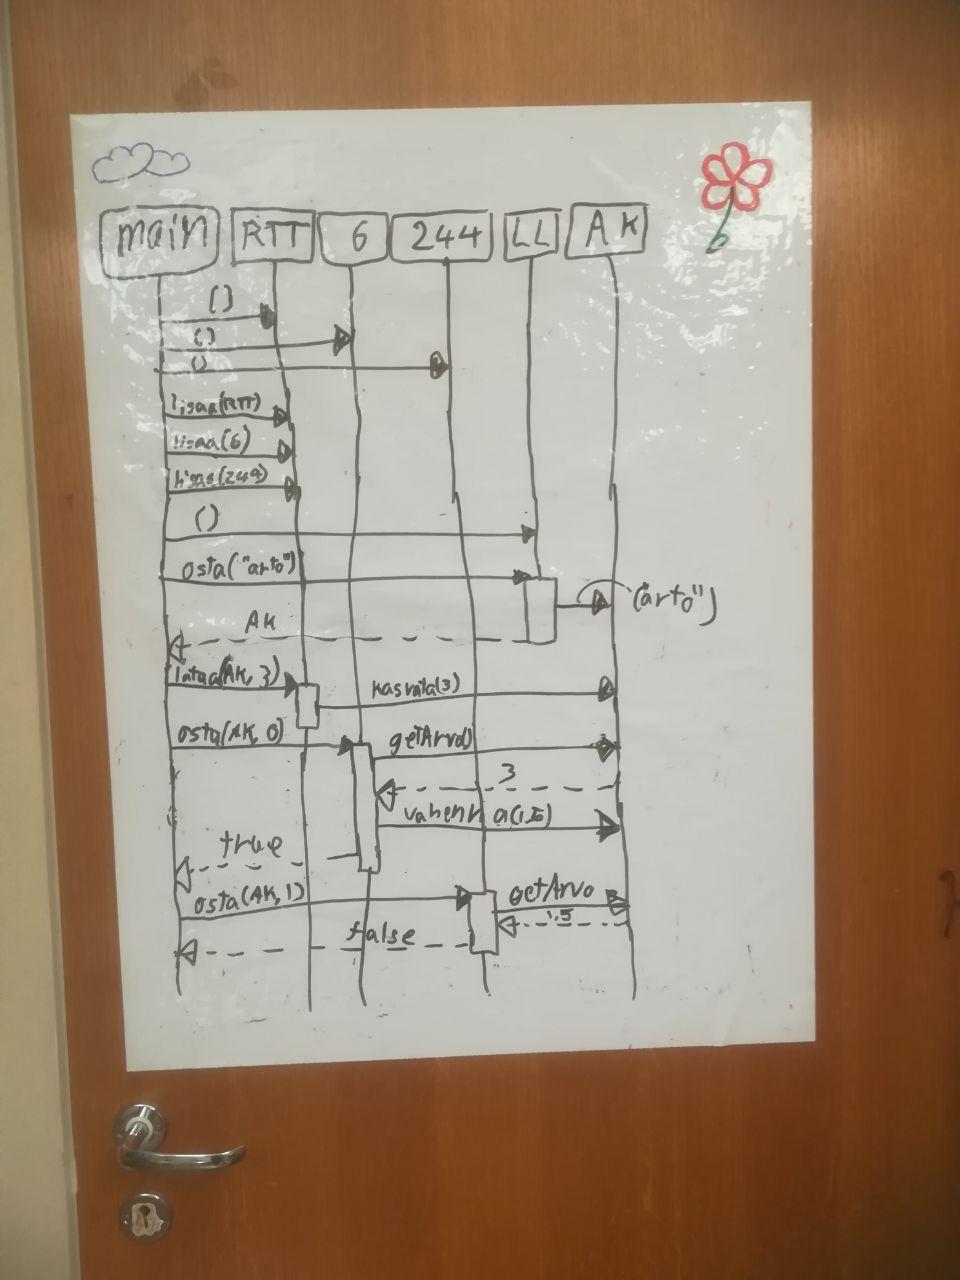 main RTT 6 244 LL AK
()
()
()
lisaa(RTT)
lisaa(6)
lisaa(244)
()
osta("arto")
("arto")
AK
lataa(AK, 3)
kasvata(3)
osta(AK, 0)
getArvo()
3
vahenna(1,5)
true
osta(AK, 1)
getArvo
1.5
false